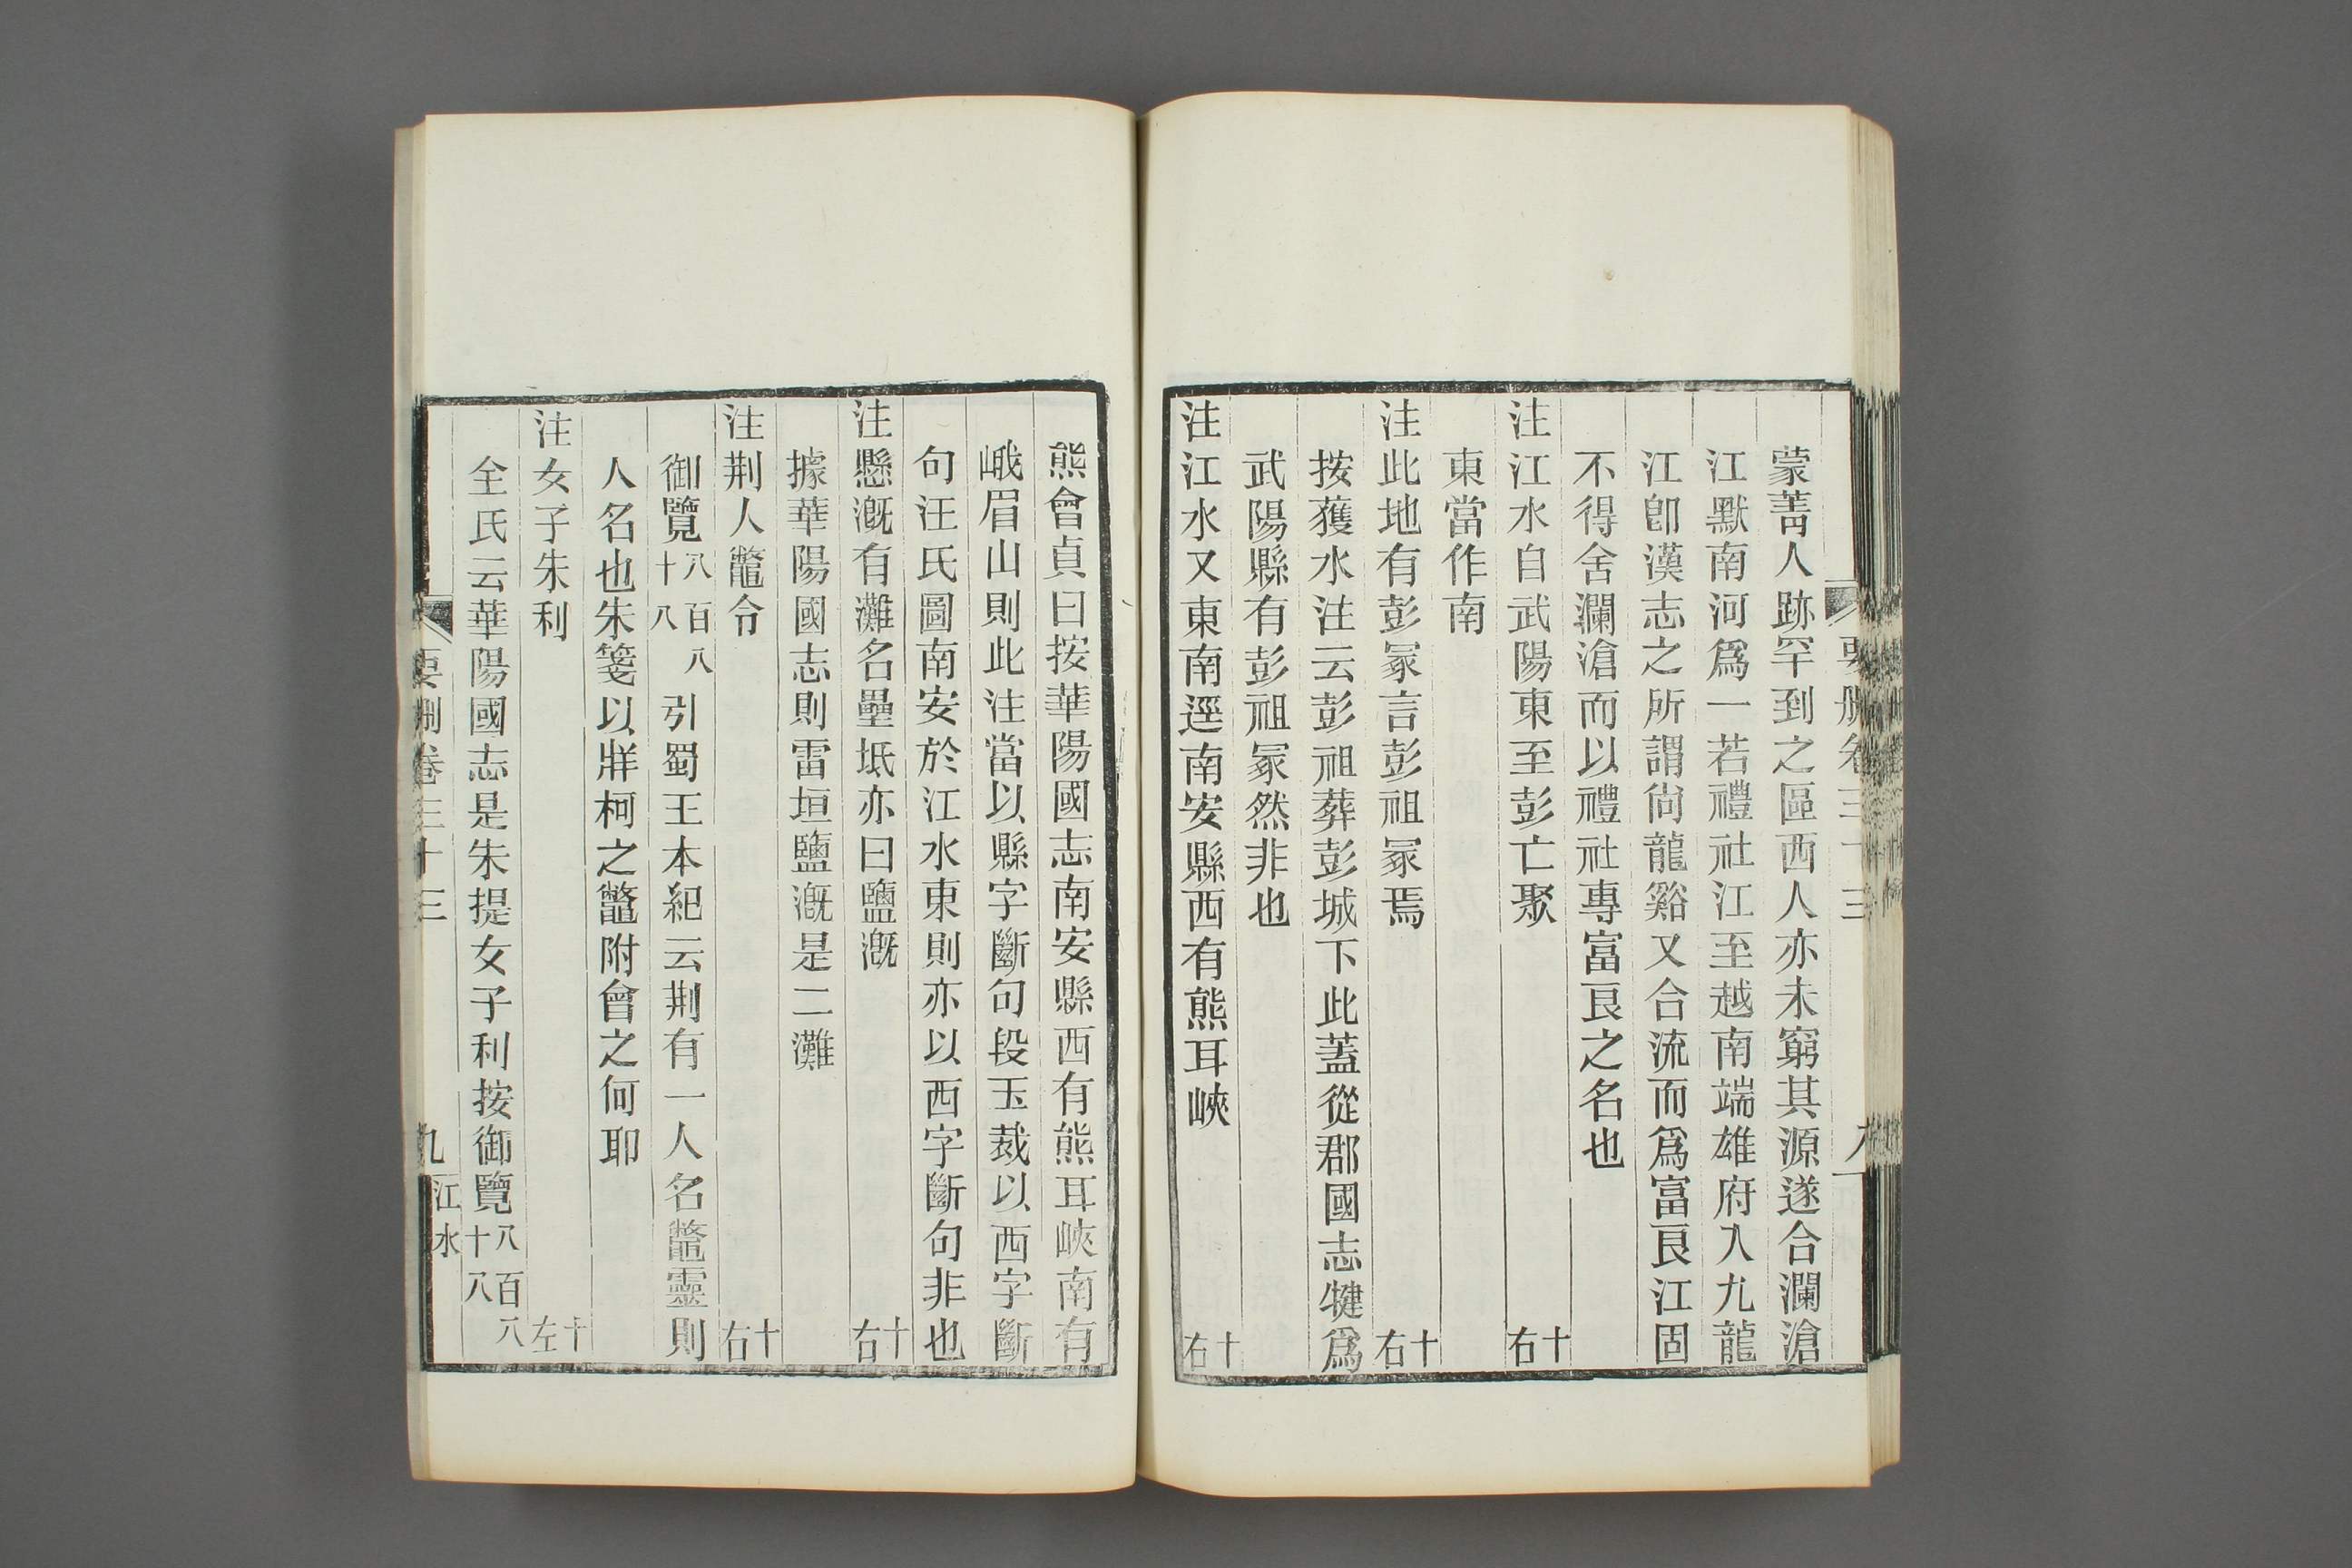 蒙菁人跡罕到之區西人亦未窮其源遂合瀾滄
江默南河爲一若禮社江至越南端雄府入九龍
江卽漢志之所謂尙龍谿又合流而爲富良江固
不得舍瀾滄而以禮社專富良之名也
注江水自武陽東至彭亡聚 十右
東當作南
注此地有彭冢言彭祖冢焉 十右
按獲水注云彭祖葬彭城下此蓋從郡國志犍爲
武陽縣有彭祖冢然非也
注江水又東南逕南安縣西有熊耳峽 十右
熊會貞曰按華陽國志南安縣西有熊耳峽南有
峨眉山則此注當以縣字斷句段玉裁以西字斷
句汪氏圖南安於江水東則亦以西字斷句非也
注懸漑有灘名壘坻亦曰鹽漑 十右
據華陽國志則雷垣鹽漑是二灘
注荆人鼈令 十右
御覽八百八十八引蜀王本紀云荆有一人名鼈靈則
人名也朱箋以牂柯之鼈附會之何耶
注女子朱利 十左
全氏云華陽國志是朱提女子利按御覽八百八十八
要刪卷三十三 九 江水